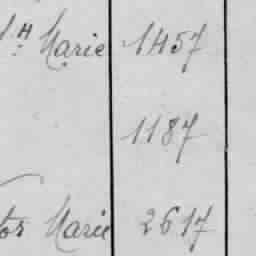 Marie 1457
1187
tor Marie 2617